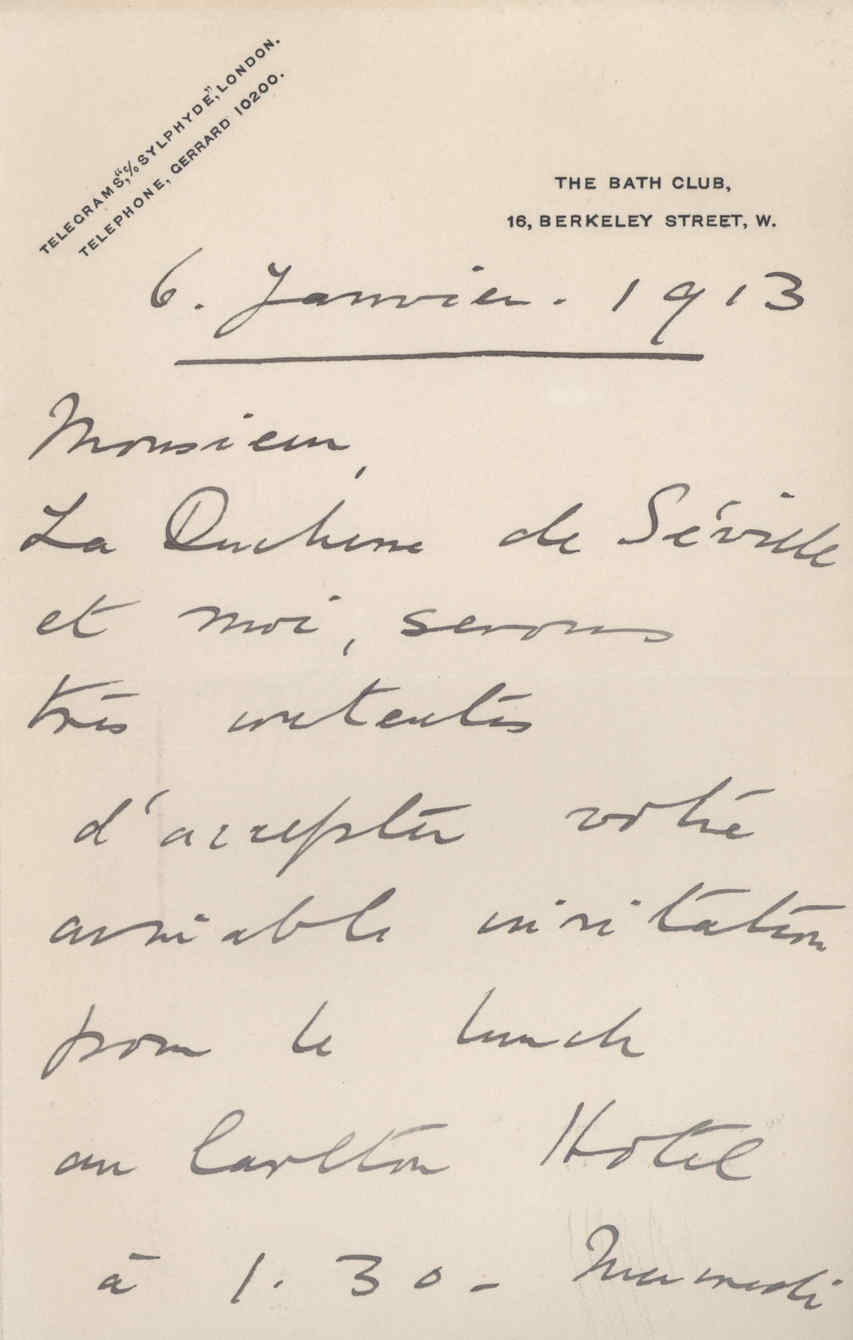 TELEGRAMS, "c/o SYLPHYDE," LONDON.
TELEPHONE, GERRARD 10200.
THE BATH CLUB,
16, BERKELEY STREET, W.
6. Janvier. 1913
Monsieur,
La Duchesse de Séville
et moi, serons
très contentes
d'accepter votre
aimable invitation
pour le lunch
au Carlton Hotel
à 1.30 - Mercredi